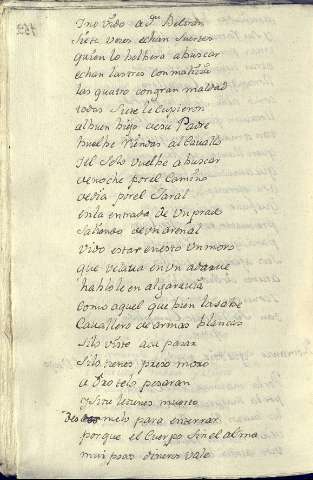 Ino vido a Dn Beltran
Siete veces echan suertes
quien lo bolbera a buscar
echan las tres con malicia
las quatro con gran maldad
todas siete le cupieron
al buen biejo de su Padre
buelbe riendas al Cavallo
i el solo buelbe a buscar
de noche por el Camino
de dia por el Jaral
en la entrada de un prado
Saliendo de un arenal
vido estar en esto un moro
que velava en un adarve
hablole en algaravia
Como aquel que bien la sabe
Cavallero de armas blancas
Silo viste aca pasar
Silo tienes preso moro
a oro telo pesaran
y Site le tienes muerto
Des melo para enterrar
porque el Cuerpo sin el alma
mui pocos dineros vale